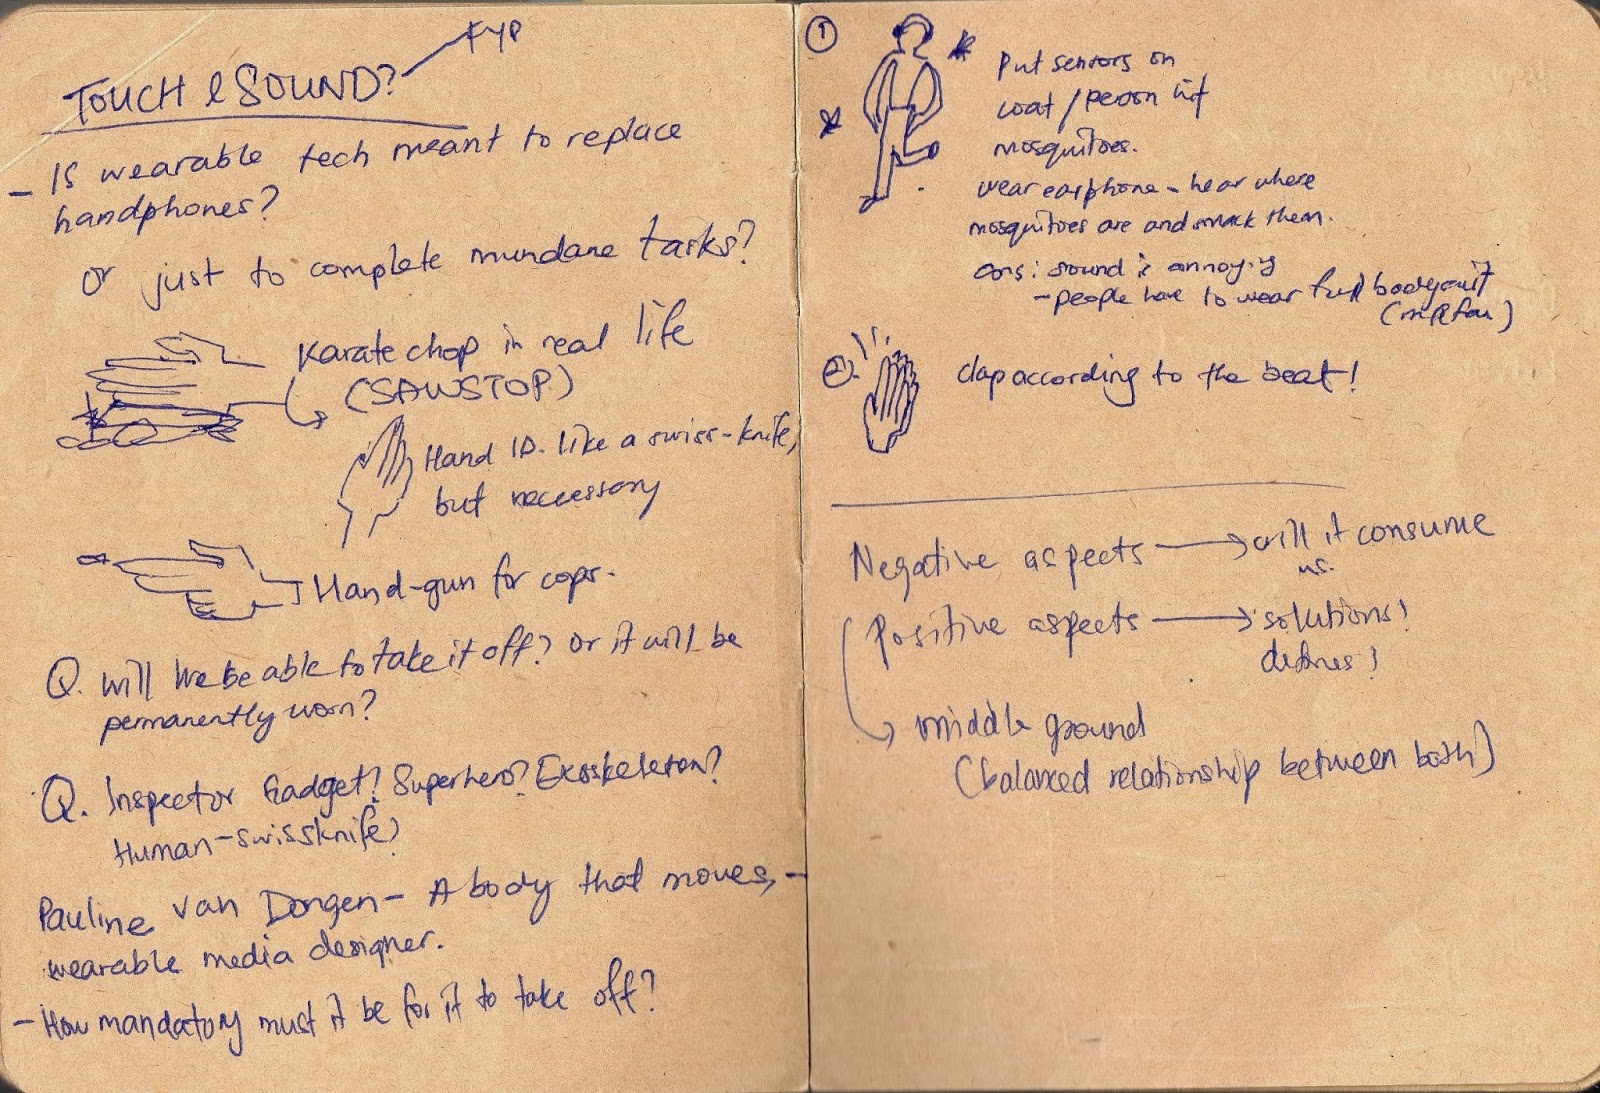 FYP
TOUCH & SOUND?
- Is wearable tech meant to replace
handphones?
or just to complete mundane tasks?
Karate chop in real life
(SAWSTOP)
Hand ID. like a swiss-knife,
but neccessary
Hand-gun for cops.
Q. will we be able to take it off? or it will be
permanently worn?
Q. Inspector Gadget? Superhero? Exoskeleton?
Human-swissknife?
Pauline van Dongen - A body that moves, -
wearable media designer.
- How mandatory must it be for it to take off?
1
Put sensors on
coat / person
mosquitoes.
wear earphone - hear where
mosquitoes are and smack them.
cons: sound is annoying
- people have to wear full bodysuit
2.
clap according to the beat!
Negative aspects → will it consume
us.
Positive aspects → solutions!
desires!
middle ground
(balanced relationship between both)